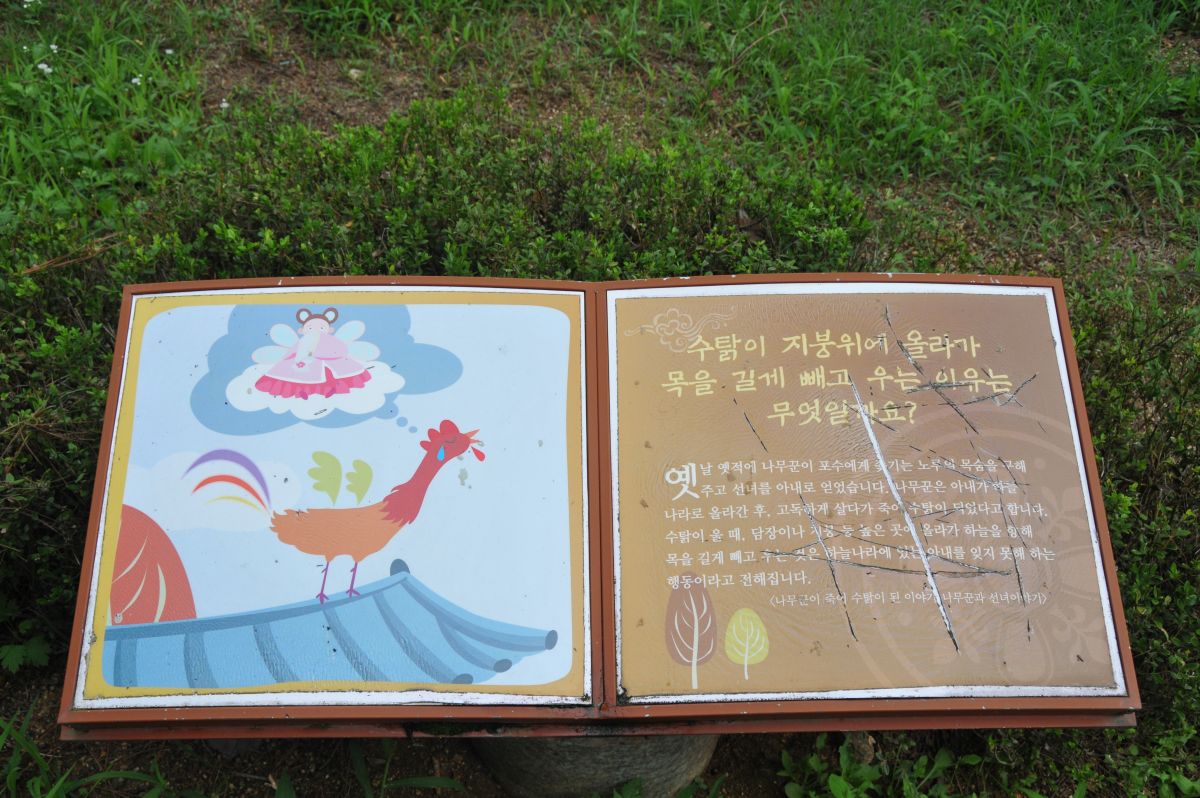 수탉이 지붕위에 올라가
목을 길게 빼고 우는 이유는
무엇일까요?
옛날 옛적에 나무꾼이 포수에게 쫓기는 노루의 목숨을 구해
주고 선녀를 아내로 얻었습니다. 나무꾼은 아내가 하늘
나라로 올라간 후, 고독하게 살다가 죽어 수탉이 되었다고 합니다.
수탉이 울 때, 담장이나 지붕 등 높은 곳에 올라가 하늘을 향해
목을 길게 빼고 우는 것은 하늘나라에 있는 아내를 잊지 못해 하는
행동이라고 전해집니다.
〈나무꾼이 죽어 수탉이 된 이야기, 나무꾼과 선녀이야기〉